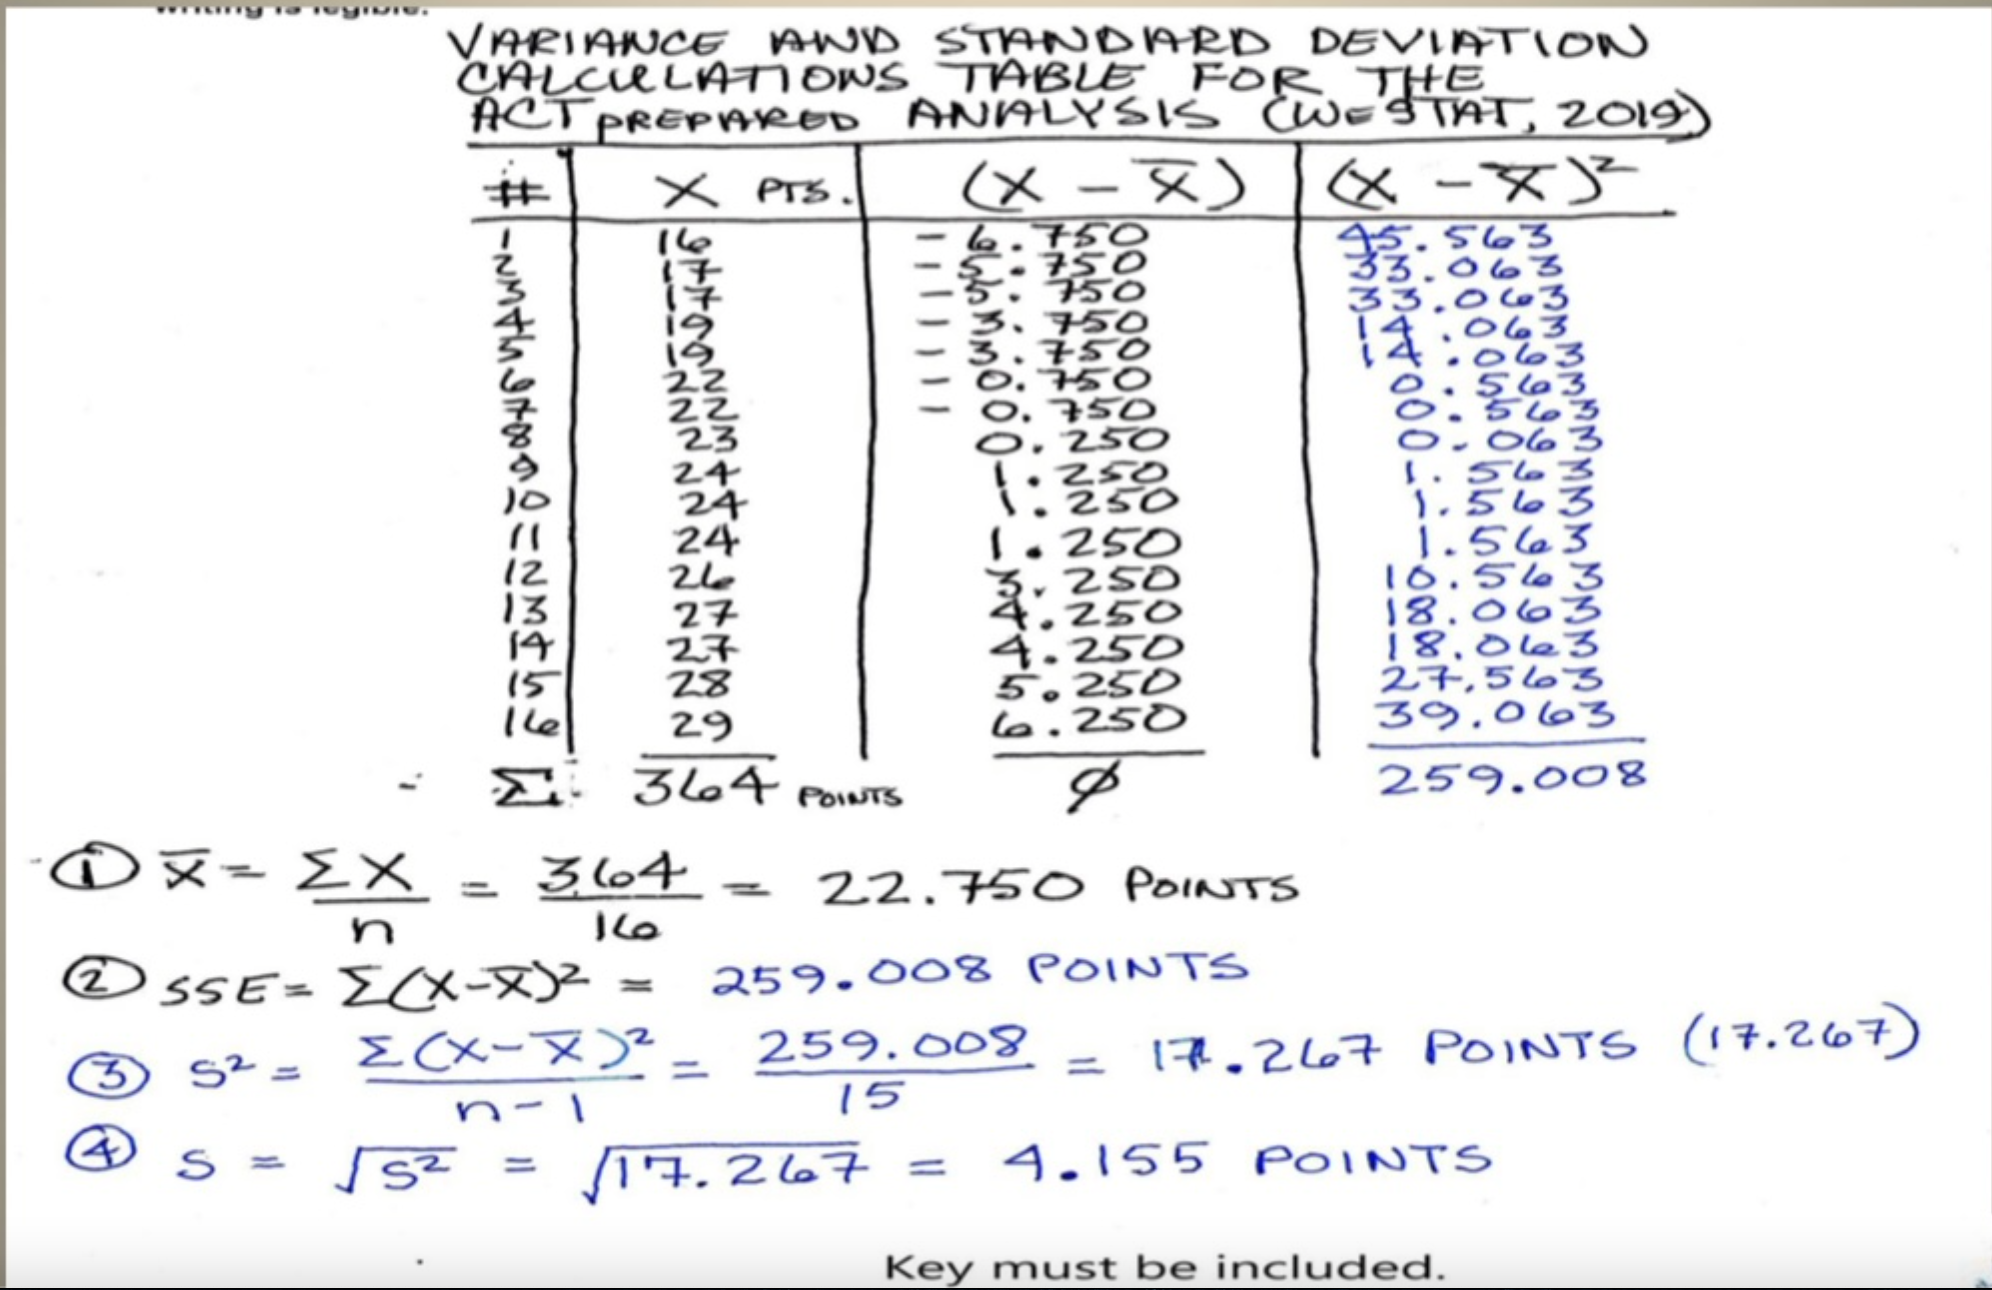 writing is legible.
VARIANCE AND STANDARD DEVIATION
CALCULATIONS TABLE FOR THE
ACT PREPARED ANALYSIS (WESTAT, 2019)
# X PTS. (X - X̄) (X - X̄)²
1 16 - 6.750 45.563
2 17 - 5.750 33.063
3 17 - 5.750 33.063
4 19 - 3.750 14.063
5 19 - 3.750 14.063
6 22 - 0.750 0.563
7 22 - 0.750 0.563
8 23 0.250 0.063
9 24 1.250 1.563
10 24 1.250 1.563
11 24 1.250 1.563
12 26 3.250 10.563
13 27 4.250 18.063
14 27 4.250 18.063
15 28 5.250 27.563
16 29 6.250 39.063
Σ 364 POINTS ∅ 259.008
① X̄ = ΣX / n = 364 / 16 = 22.750 POINTS
② SSE = Σ(X-X̄)² = 259.008 POINTS
③ S² = Σ(X-X̄)² / n-1 = 259.008 / 15 = 17.267 POINTS (17.267)
④ S = √S² = √17.267 = 4.155 POINTS
Key must be included.